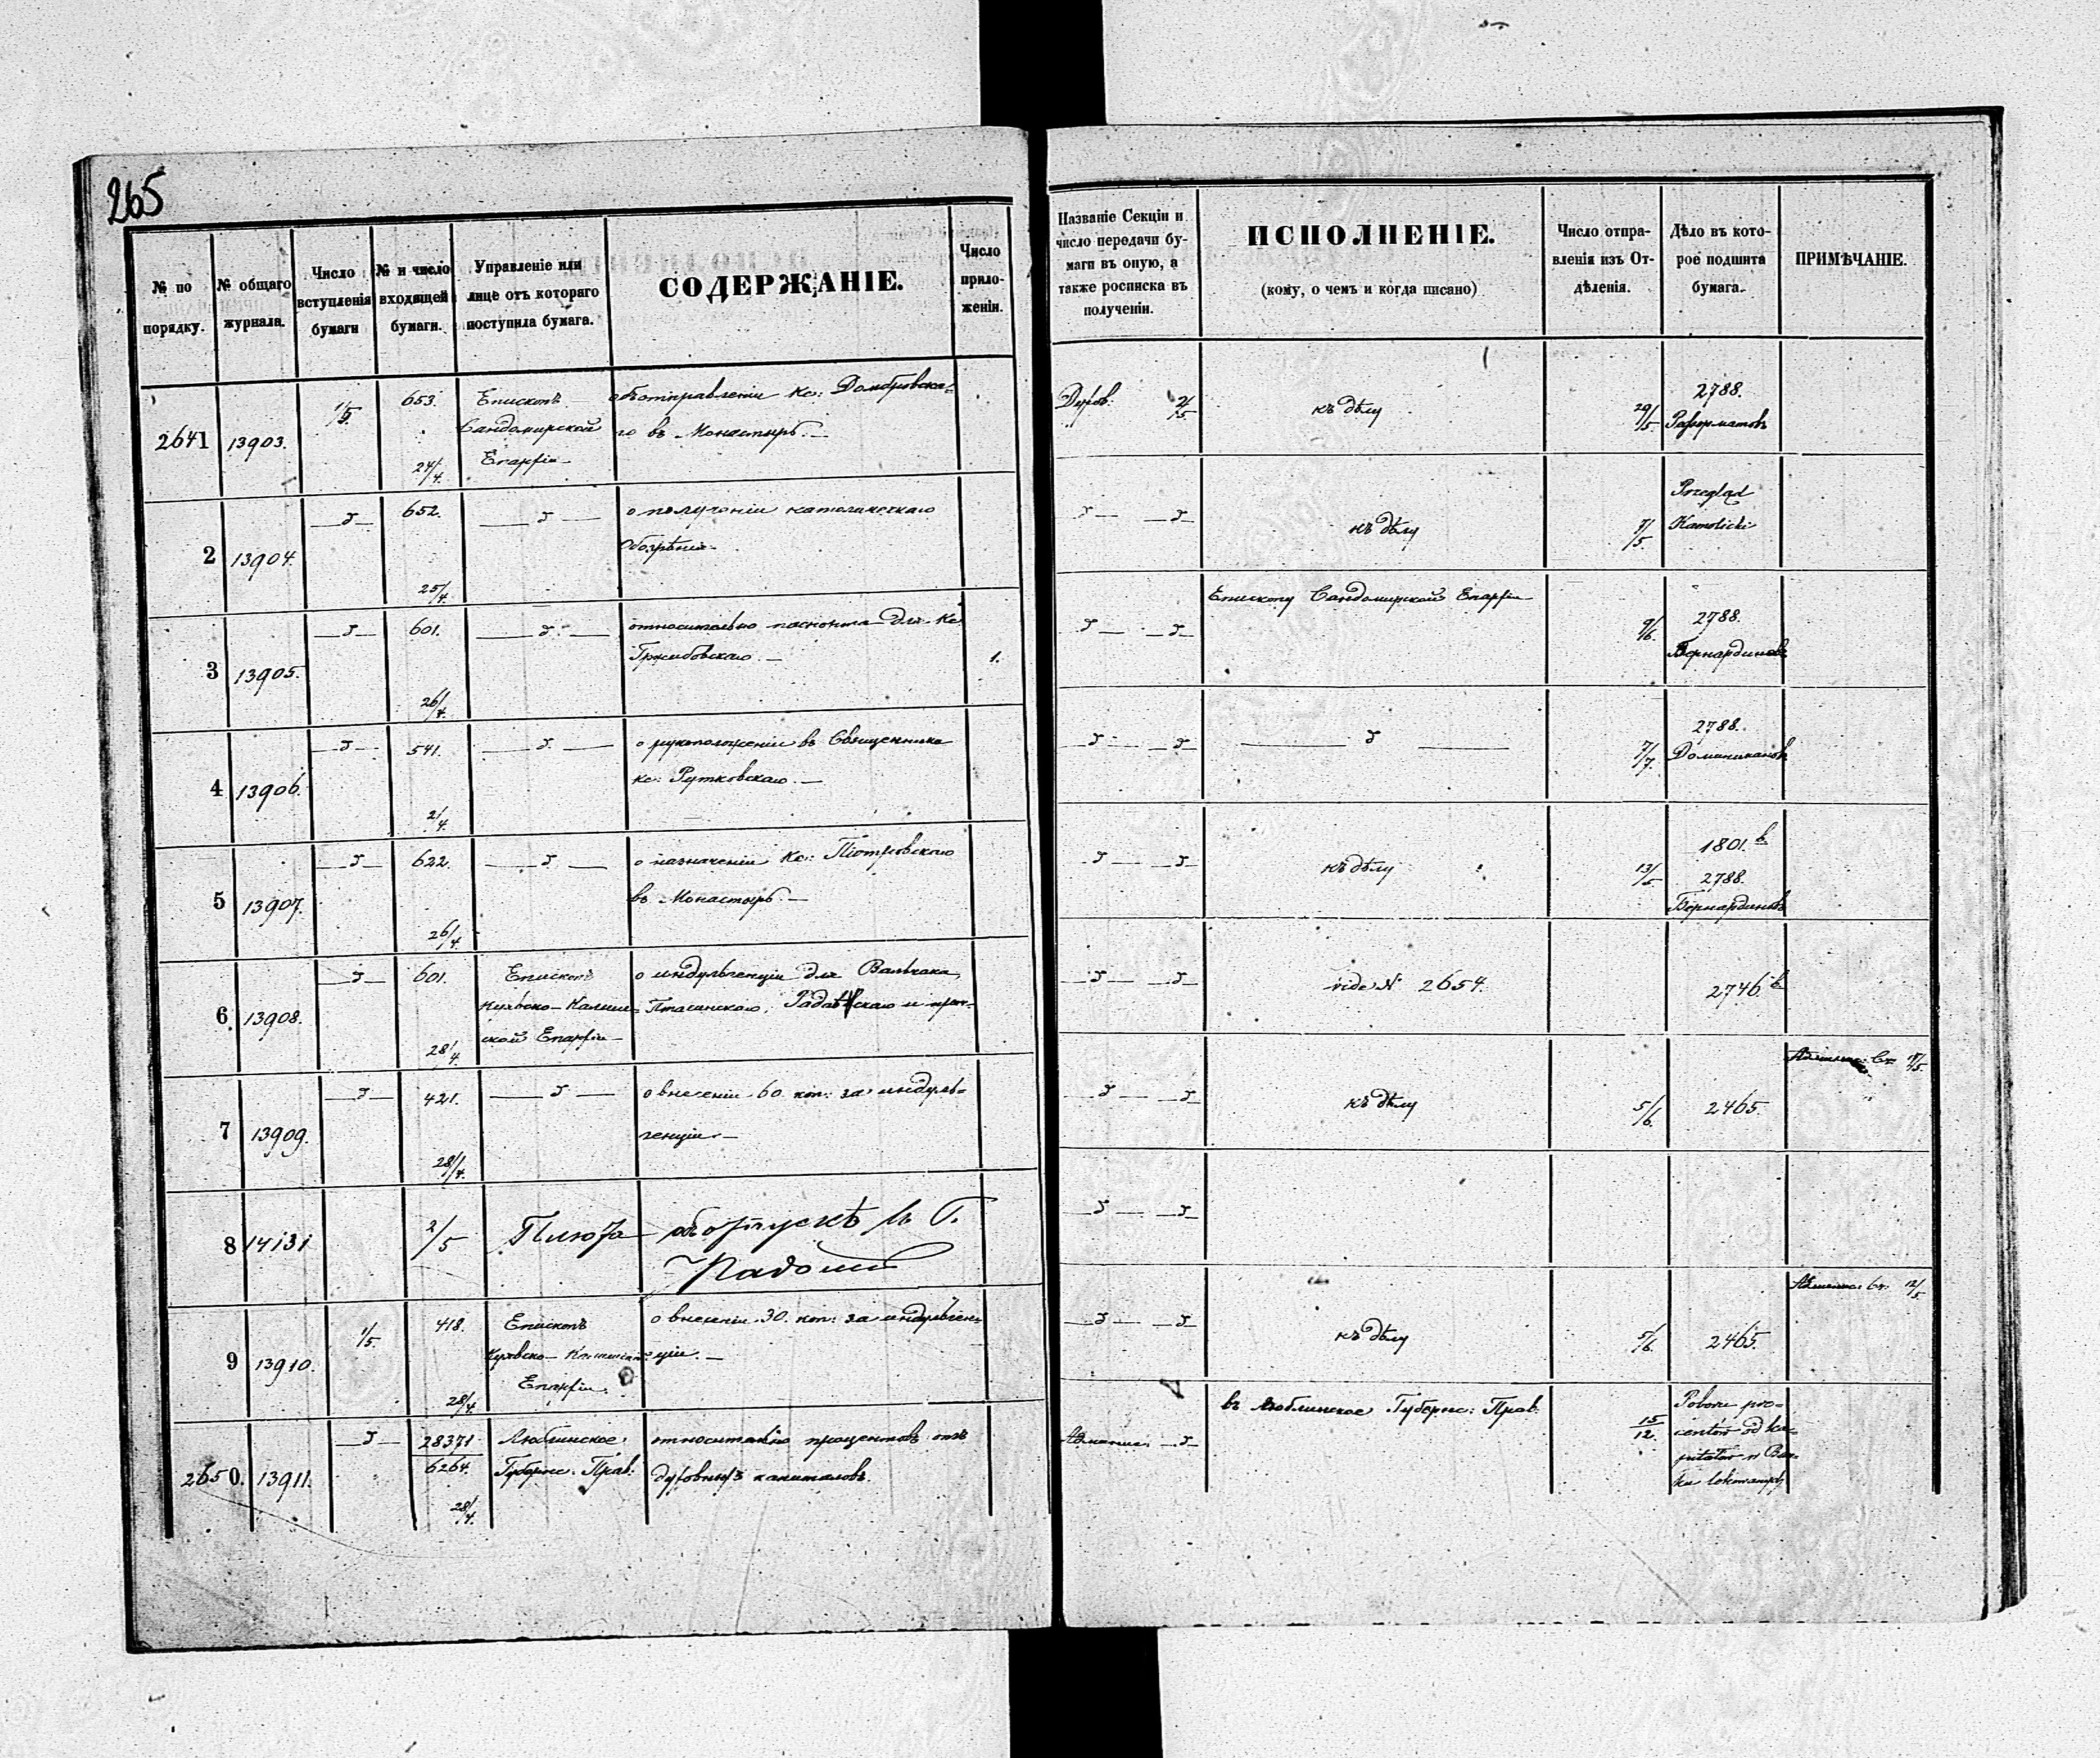 265
№ по порядку.
№ общаго журнала.
Число вступленія бумаги
№ и число входящей бумаги.
Управленіе или лице отъ котораго поступила бумага.
СОДЕРЖАНІЕ.
Число прило- женій.
Названіе Секціи и
число передачи бу-
маги въ оную, а
также росписка въ
полученіи.
ИСПОЛНЕНІЕ.
(кому, о чемъ и когда писано)
Число отпра-
вленія изъ От-
дѣленія.
Дѣло въ кото-
рое подшита
бумага.
ПРИМѢЧАНІЕ.
2641 13903. 1/5. 653. 24/4.
Епископъ
Сандомирской
Епархіи
объ отправленіи Кс: Домбровска-
го въ Монастырь.—
Духов: 2/5
къ дѣлу
29/5
2788.
Реформатовъ
2 13904. 652. 25/4.
о полученіи католическаго
Обозрѣнія.
къ дѣлу
7/5.
Przegląd
Katolicki
3 13905. 601. 26/4.
относительно паспорта для Кс
Гржибовскаго.—
1.
Епископу Сандомирской Епархіи
9/6.
2788.
Бернардиновъ
4 13906. 541. 2/4.
о рукоположеніи въ Священника
кс: Рутковскаго.—
7/7.
2788.
Доминикановъ
5 13907. 622. 26/4.
о назначеніи Кс: Піотровскаго
въ Монастырь.—
къ дѣлу
13/5.
1801. b
2788.
Бернардиновъ
6. 13908. 601. 28/4
Епископъ
Куявско-Калиш-
ской Епархіи
о индульгенціи для Вальчака,
Птасинскаго,
vide N 2654.
2746 b
7 13909. 421. 28/4.
о внесеніи 60. коп: за индуль-
генціи.—
къ дѣлу
5/6.
2465.
8 14131 2/5
объ отпускѣ въ Г.
Радомъ
9 13910. 1/5. 418. 28/4.
Епископъ
Куявско-Калишской
Епархіи.
о внесеніи 30. коп: за индульген-
ціи.—
къ дѣлу
5/6.
2465.
12/5
2650. 13911. 28371 6264. 28/4.
Люблинское
Губернс: Прав:
относительно процентовъ отъ
духовныхъ капиталовъ.
въ Люблинское Губернс: Прав:
15/12.
Pobore pro-
centów od ka-
pitałów w Ban-
ku lokowanych